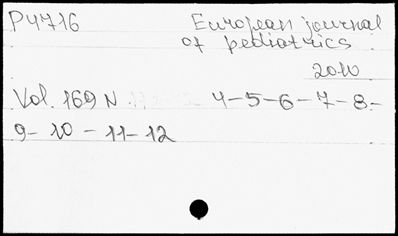 P4716 European journal
of pediatrics
2010
Vol. 169 N 4-5-6-7-8-
9-10-11-12